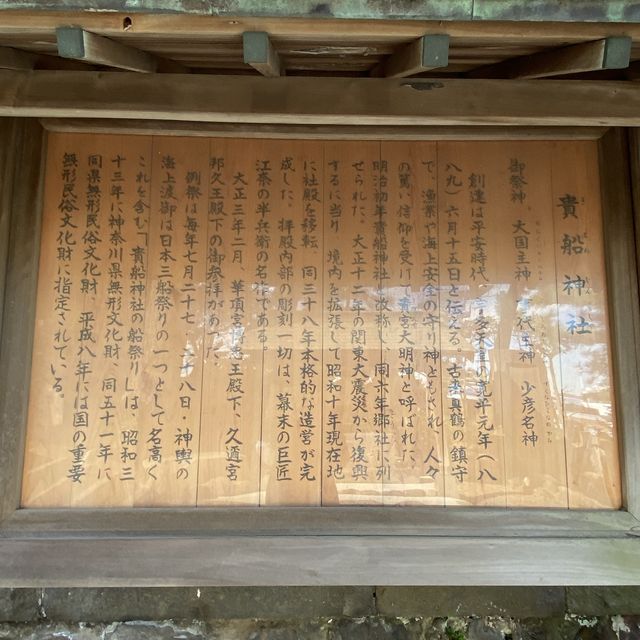 貴船神社
御祭神、大国主神 事代主神 少彦名神
創建は平安時代、宇多天皇の寛平元年(八
八九)六月十五日と伝える。古来真鶴の鎮守
で、漁業や海上安全の守り神とされ、人々
の篤い信仰を受け、貴宮大明神と呼ばれた、
明治初年貴船神社と改称し、同六年郷社に列
せられた、大正十二年の関東大震災から復興
するに当り、境内を拡張して昭和十年現在地
に社殿を移転、同三十八年本格的な造営が完
成した、拝殿内部の彫刻一切は、幕末の巨匠
江奈の半兵衛の名作である。
大正三年二月、華頂宮博忠王殿下、久邇宮
邦久王殿下の御参拝があった、
例祭は毎年七月二十七、二十八日・神輿の
海上渡御は日本三船祭りの一つとして名高く
これを含む「貴船神社の船祭り」は、昭和三
十三年に神奈川県無形文化財、同五十一年に
同県無形民俗文化財、平成八年には国の重要
無形民俗文化財に指定されている。